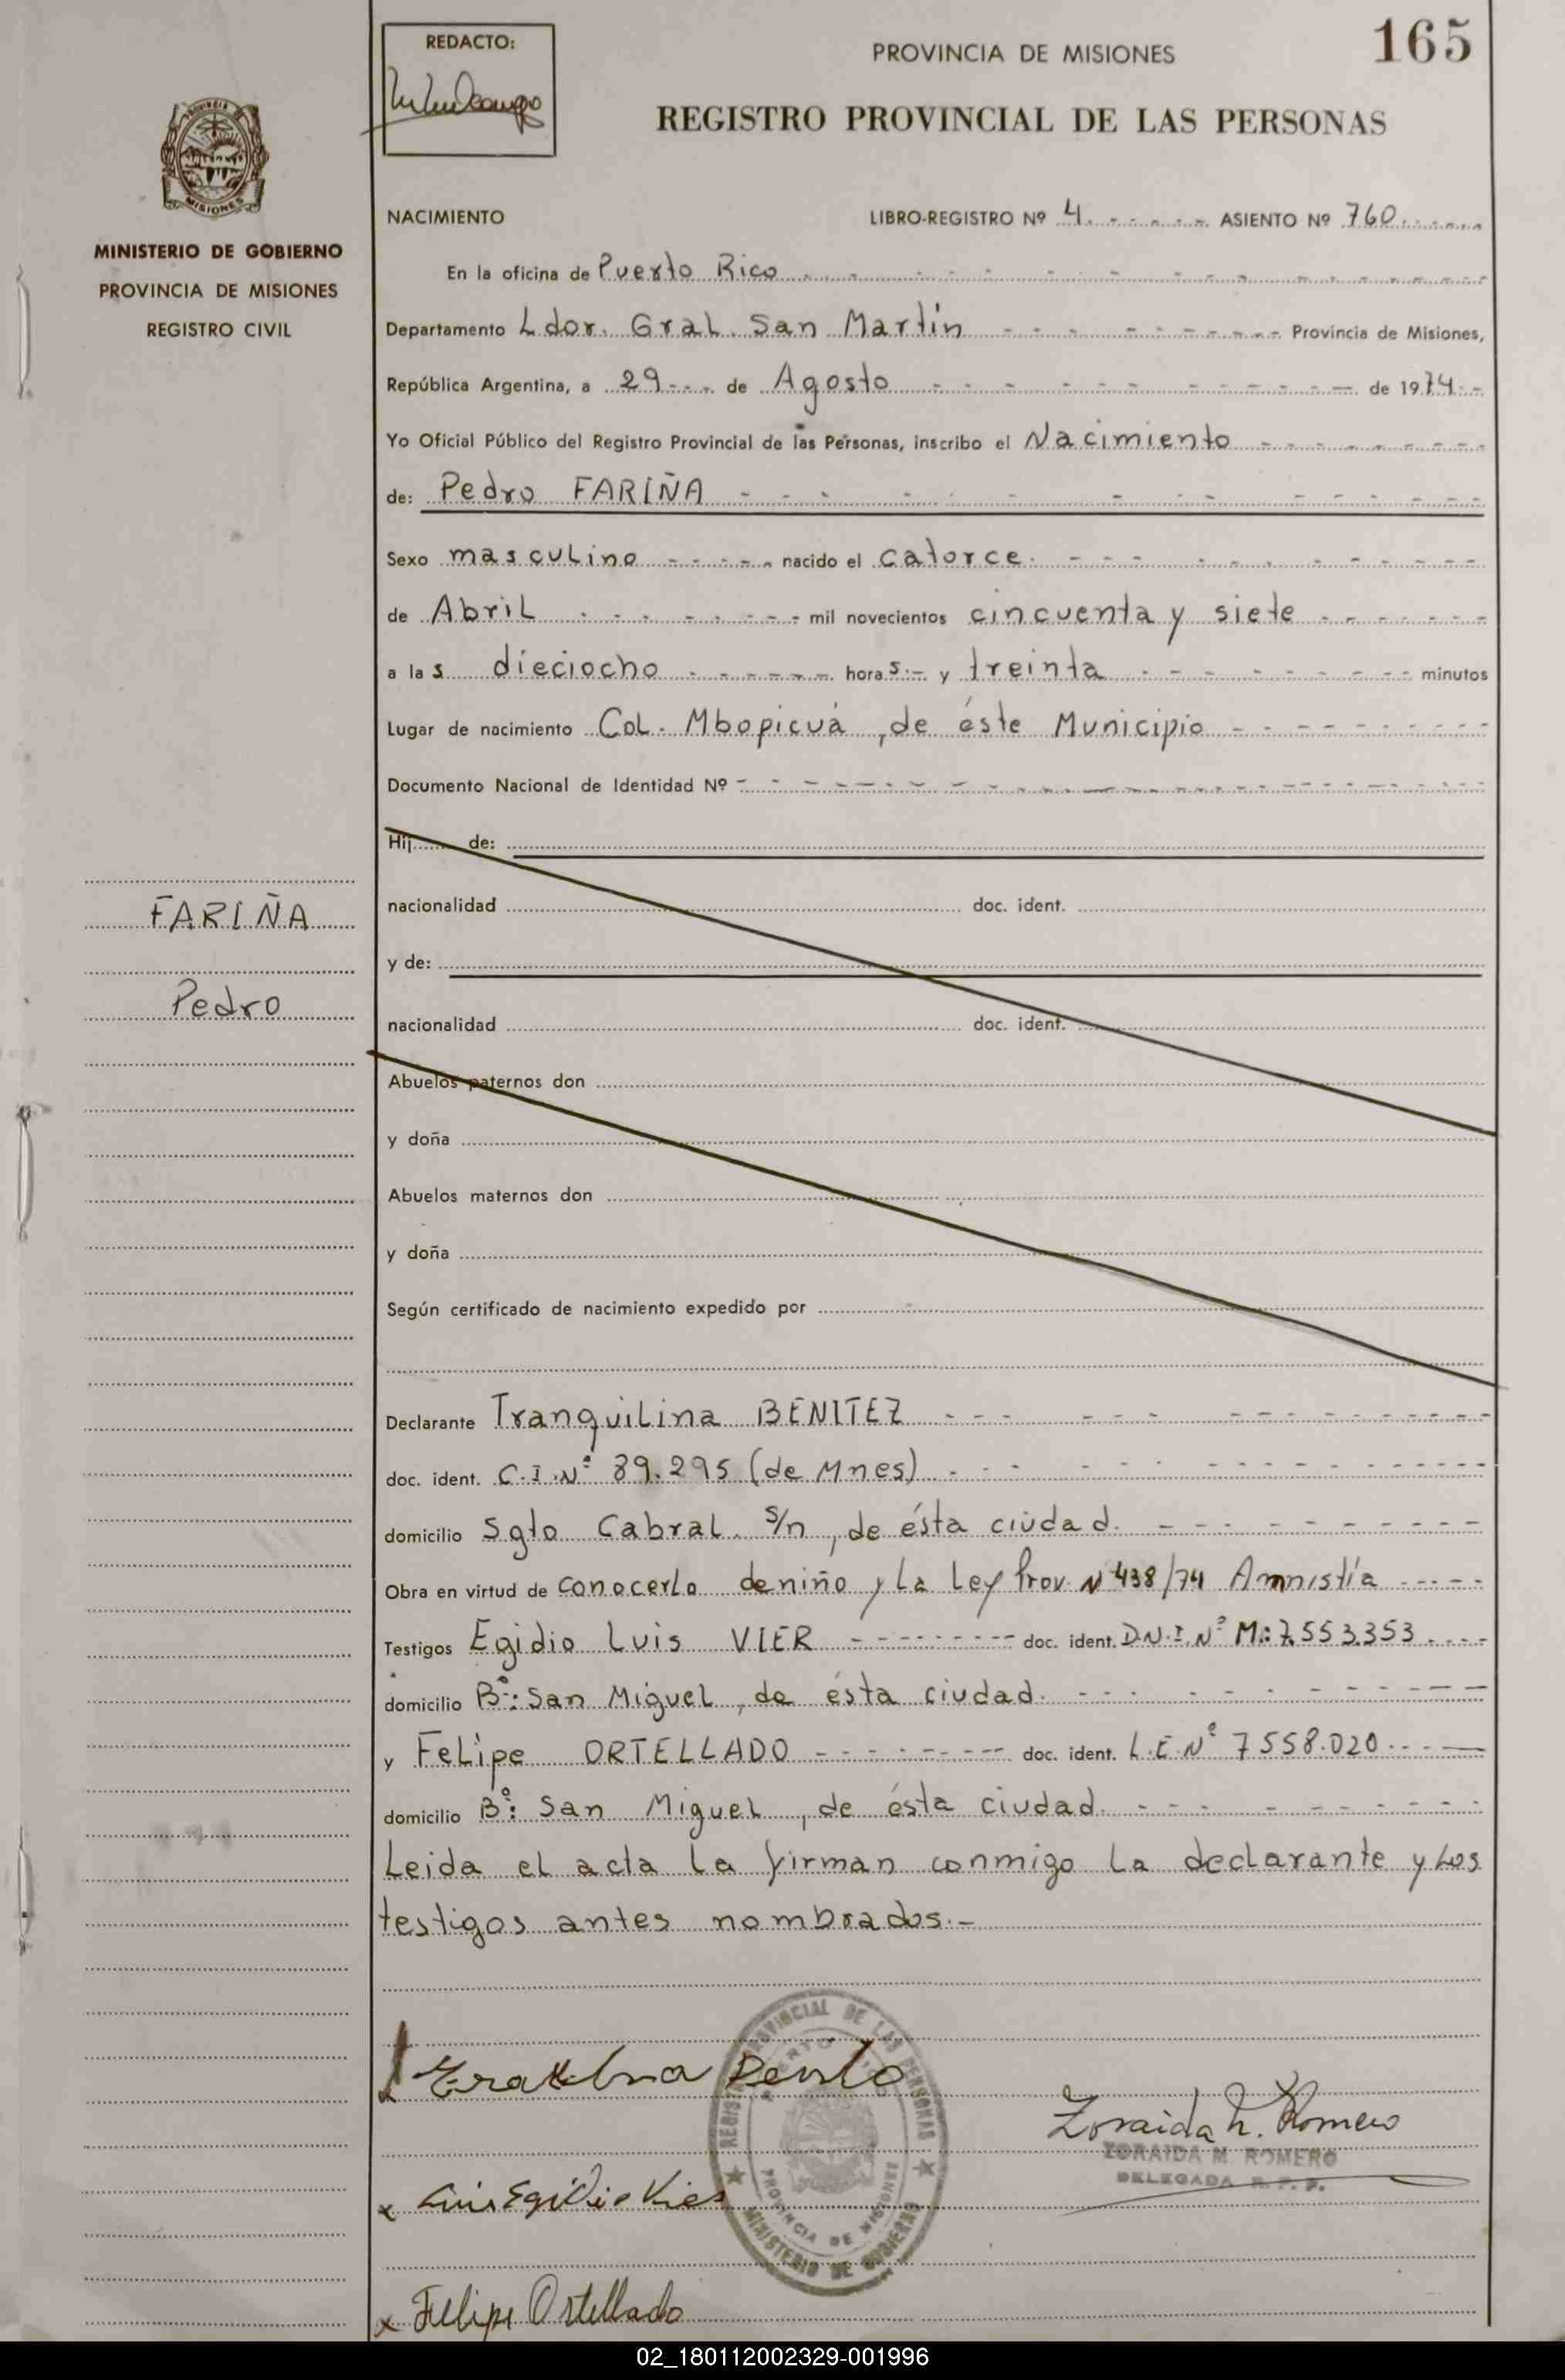 165
REDACTO:
PROVINCIA DE MISIONES
REGISTRO PROVINCIAL DE LAS PERSONAS
MISIONES
MINISTERIO DE GOBIERNO
PROVINCIA DE MISIONES
REGISTRO CIVIL
NACIMIENTO LIBRO-REGISTRO Nº 4 ASIENTO Nº 760
En la oficina de Puerto Rico
Departamento Ldor. Gral. San Martín Provincia de Misiones,
República Argentina, a 29 de Agosto de 1974
Yo Oficial Público del Registro Provincial de las Personas, inscribo el Nacimiento
de: Pedro FARIÑA
Sexo masculino nacido el catorce
de Abril mil novecientos cincuenta y siete
a las dieciocho horas y treinta minutos
Lugar de nacimiento Col. Mbopicuá, de éste Municipio
Documento Nacional de Identidad Nº
Hij de:
nacionalidad doc. ident.
y de:
nacionalidad doc. ident.
Abuelos paternos don
y doña
Abuelos maternos don
y doña
Según certificado de nacimiento expedido por
FARIÑA
Pedro
Declarante Tranquilina BENITEZ
doc. ident. C.I.Nº 89.295 (de Mnes)
domicilio Sgto Cabral s/n, de ésta ciudad.
Obra en virtud de conocerlo de niño y la Ley Prov. Nº 438/74 Amnistía
Testigos Egidio Luis VIER doc. ident. D.N.I. Nº M: 7.553.353
domicilio Bº: San Miguel, de ésta ciudad.
y Felipe ORTELLADO doc. ident. L.E.Nº 7558.020
domicilio Bº: San Miguel, de ésta ciudad.
Leida el acta la firman conmigo la declarante y los
testigos antes nombrados.-
REGISTRO PROVINCIAL DE LAS PERSONAS
PUERTO RICO
PROVINCIA DE MISIONES
MINISTERIO DE GOBIERNO
Zoraida M. Romero
ZORAIDA M. ROMERO
DELEGADA R. P. P.
x Luis Egidio Vier
x Felipe Ortellado
02_180112002329-001996